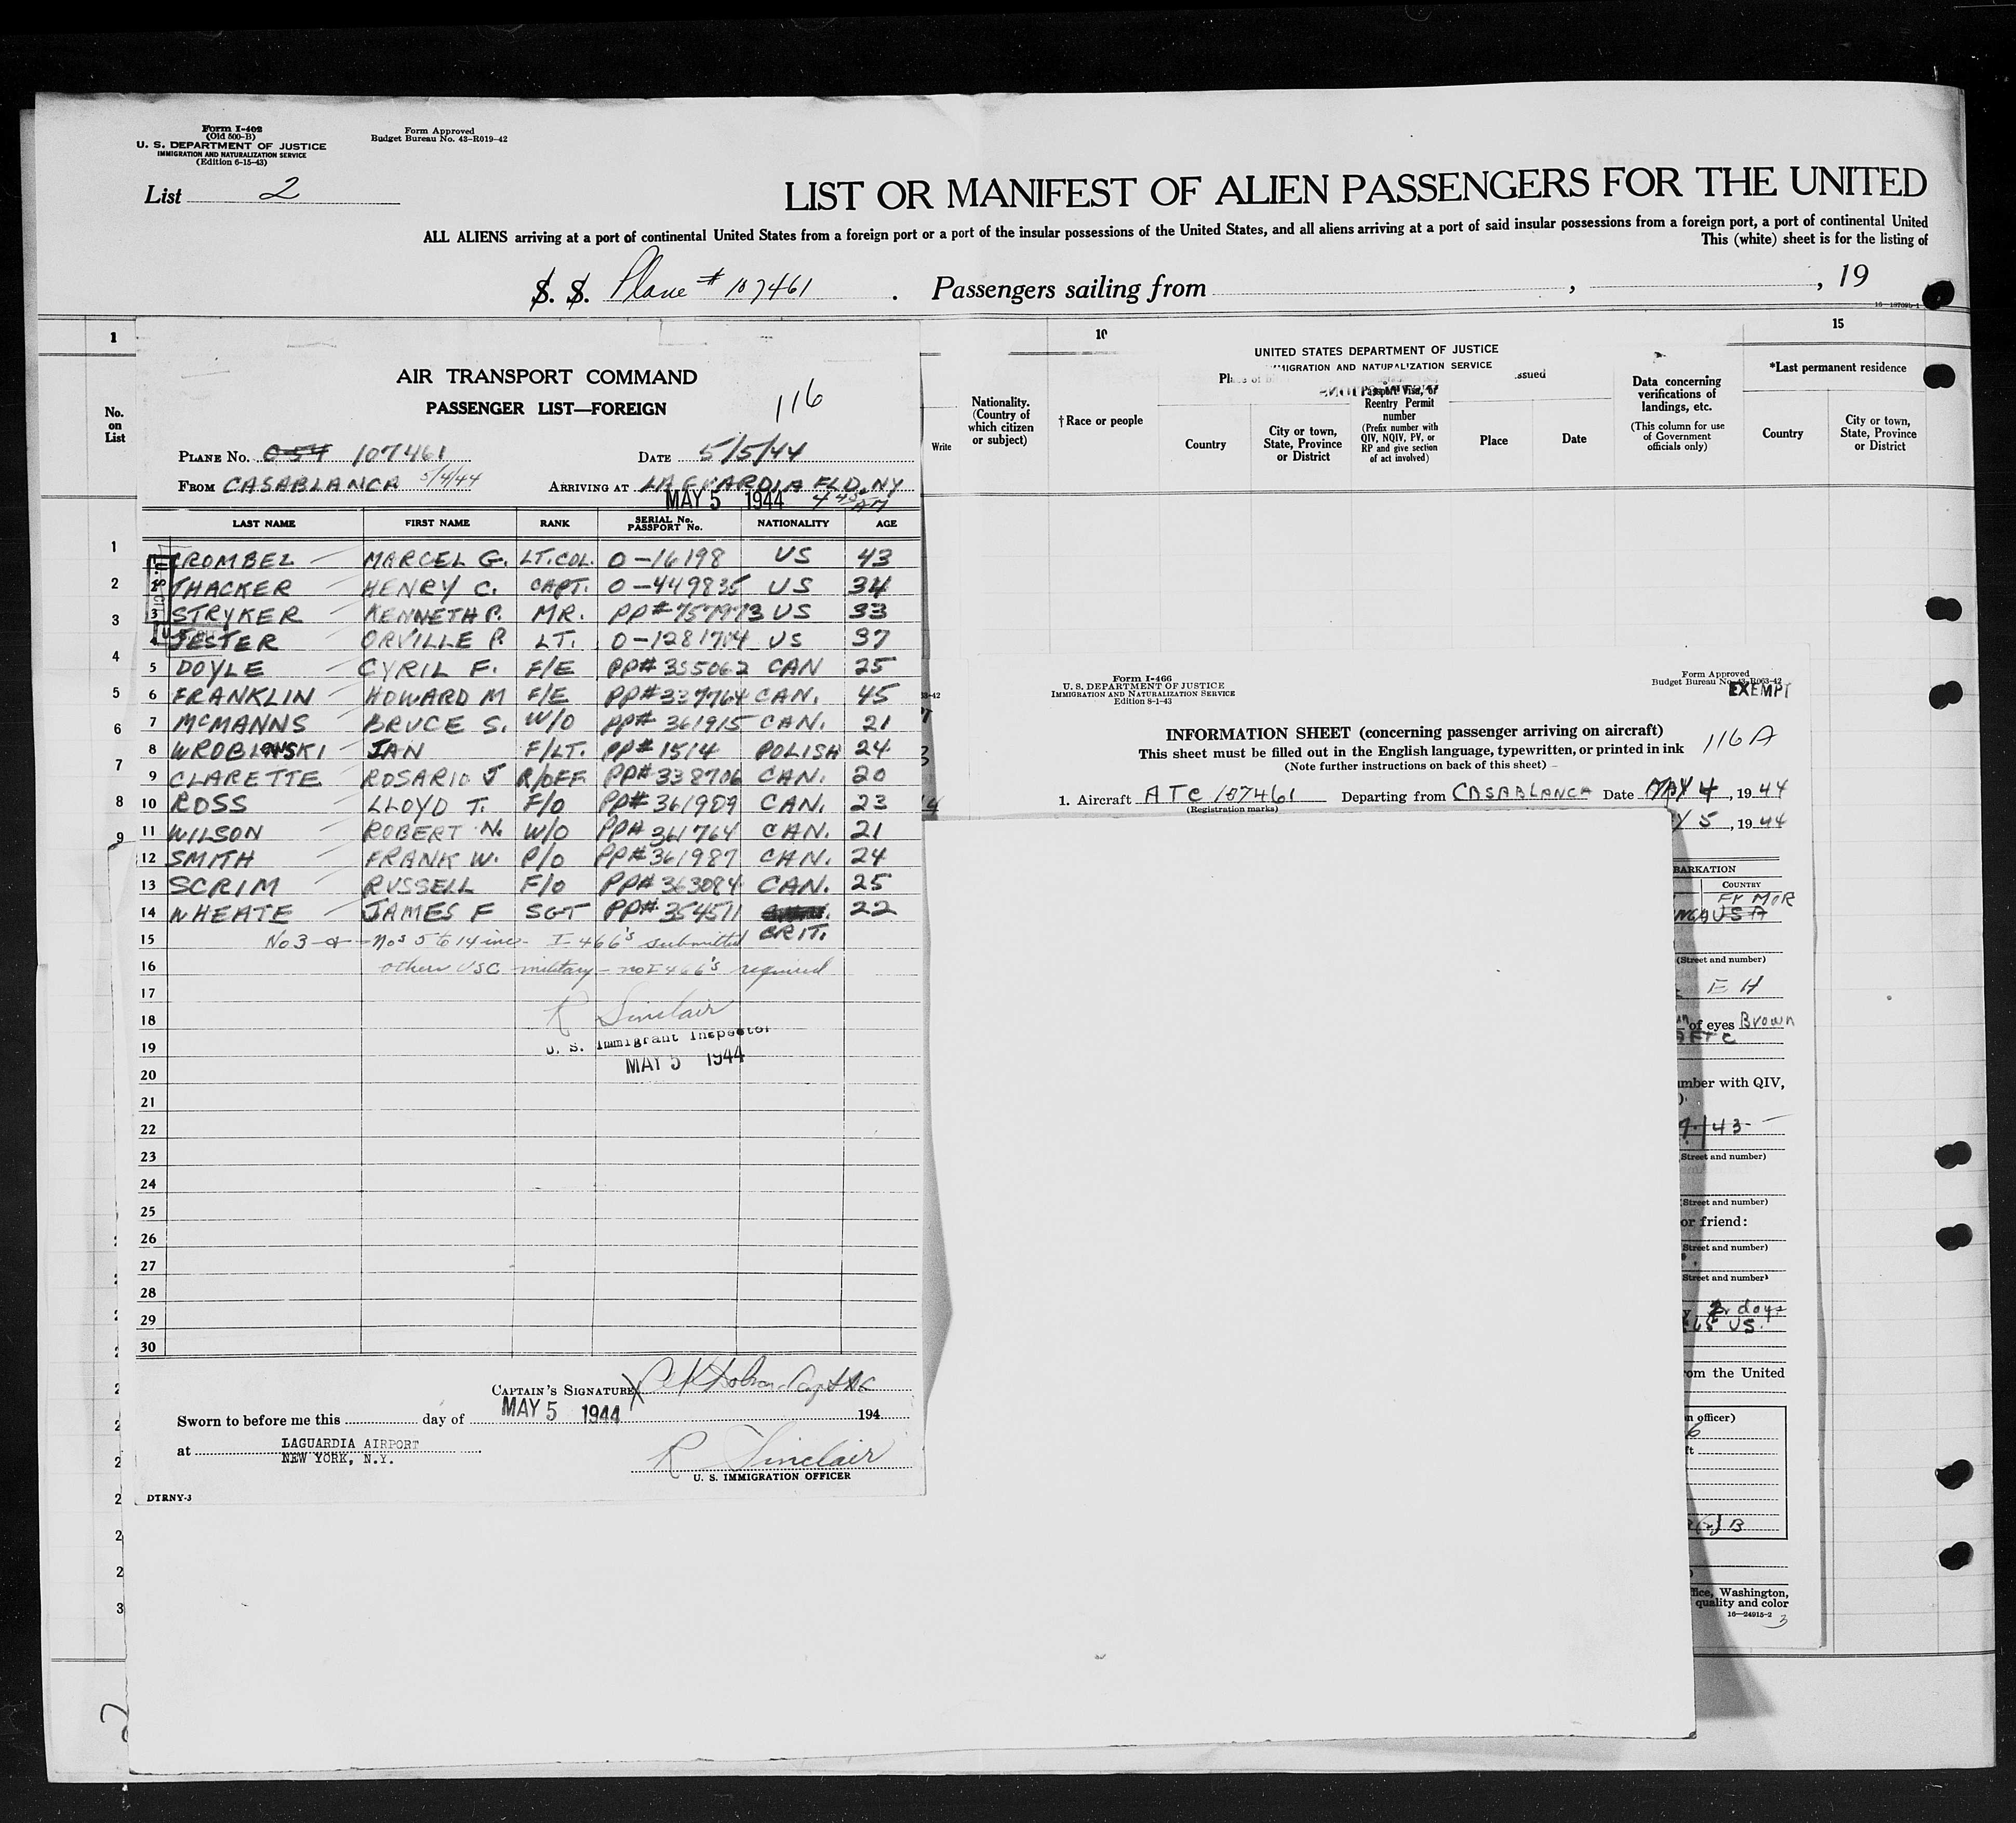 Form I-402
(Old 500-B)
U. S. DEPARTMENT OF JUSTICE
IMMIGRATION AND NATURALIZATION SERVICE
(Edition 6-15-43)
Form Approved
Budget Bureau No. 43-R019-42
List 2
LIST OR MANIFEST OF ALIEN PASSENGERS FOR THE UNITED
ALL ALIENS arriving at a port of continental United States from a foreign port or a port of the insular possessions of the United States, and all aliens arriving at a port of said insular possessions from a foreign port, a port of continental United
This (white) sheet is for the listing of
S. S. Plane # 107461 . Passengers sailing from , , 19
1
No. on List
AIR TRANSPORT COMMAND
PASSENGER LIST—FOREIGN
116
PLANE No. C-54 107461 DATE 5/5/44
FROM CASABLANCA 5/4/44 ARRIVING AT LA GUARDIA FLD. NY
MAY 5 1944
LAST NAME FIRST NAME RANK SERIAL No. PASSPORT No. NATIONALITY AGE
CROMBEZ MARCEL G. LT. COL. O-16198 US 43
THACKER HENRY C. CAPT. O-449835 US 34
3 STRYKER KENNETH P. MR. PP# 757973 US 33
JESTER ORVILLE P. LT. O-1281704 US 37
5 DOYLE CYRIL F. F/E PP# 355062 CAN 25
6 FRANKLIN HOWARD M F/E PP# 337764 CAN. 45
7 McMANNS BRUCE S. W/O PP# 361915 CAN. 21
8 WROBLEWSKI JAN F/LT. PP# 1514 POLISH 24
9 CLARETTE ROSARIO J R/OFF PP# 338706 CAN. 20
10 ROSS LLOYD T. F/O PP# 361909 CAN. 23
11 WILSON ROBERT N. W/O PP# 361764 CAN. 21
12 SMITH FRANK W. P/O PP# 361987 CAN. 24
13 SCRIM RUSSELL F/O PP# 363084 CAN. 25
14 WHEATE JAMES F SGT PP# 354511 BRIT. 22
15 No 3 - & - Nos 5 to 14 inc - I-466's submitted
16 others USC military - no I-466's required
17
18 R Sinclair
19 U. S. Immigrant Inspector
20 MAY 5 1944
21
22
23
24
25
26
27
28
29
30
CAPTAIN'S SIGNATURE
Sworn to before me this day of MAY 5 1944 194
at LAGUARDIA AIRPORT
NEW YORK, N.Y.
R Sinclair
U. S. IMMIGRATION OFFICER
DTRNY-3
1
2
3
4
5
6
7
8
9
10
Write
Nationality. (Country of which citizen or subject)
†Race or people
UNITED STATES DEPARTMENT OF JUSTICE
IMMIGRATION AND NATURALIZATION SERVICE
Country
City or town, State, Province or District
Passport Visa, or Reentry Permit number
(Prefix number with QIV, NQIV, PV, or RP and give section of act involved)
issued
Place
Date
Data concerning verifications of landings, etc.
(This column for use of Government officials only)
15
*Last permanent residence
Country
City or town, State, Province or District
Form I-466
U. S. DEPARTMENT OF JUSTICE
IMMIGRATION AND NATURALIZATION SERVICE
Edition 8-1-43
Form Approved
Budget Bureau No. 43-R063-42
EXEMPT
INFORMATION SHEET (concerning passenger arriving on aircraft)
This sheet must be filled out in the English language, typewritten, or printed in ink
(Note further instructions on back of this sheet)
116 A
1. Aircraft ATC 107461 Departing from CASABLANCA Date MAY 4, 1944
(Registration marks)
Y 5, 1944
BARKATION
COUNTRY
Fr MOR
USA
(Street and number)
E H
of eyes Brown
umber with QIV,
43
(Street and number)
(Street and number)
or friend:
(Street and number)
(Street and number)
days
US.
om the United
n officer)
B
fice, Washington,
quality and color
16—24915-2
3